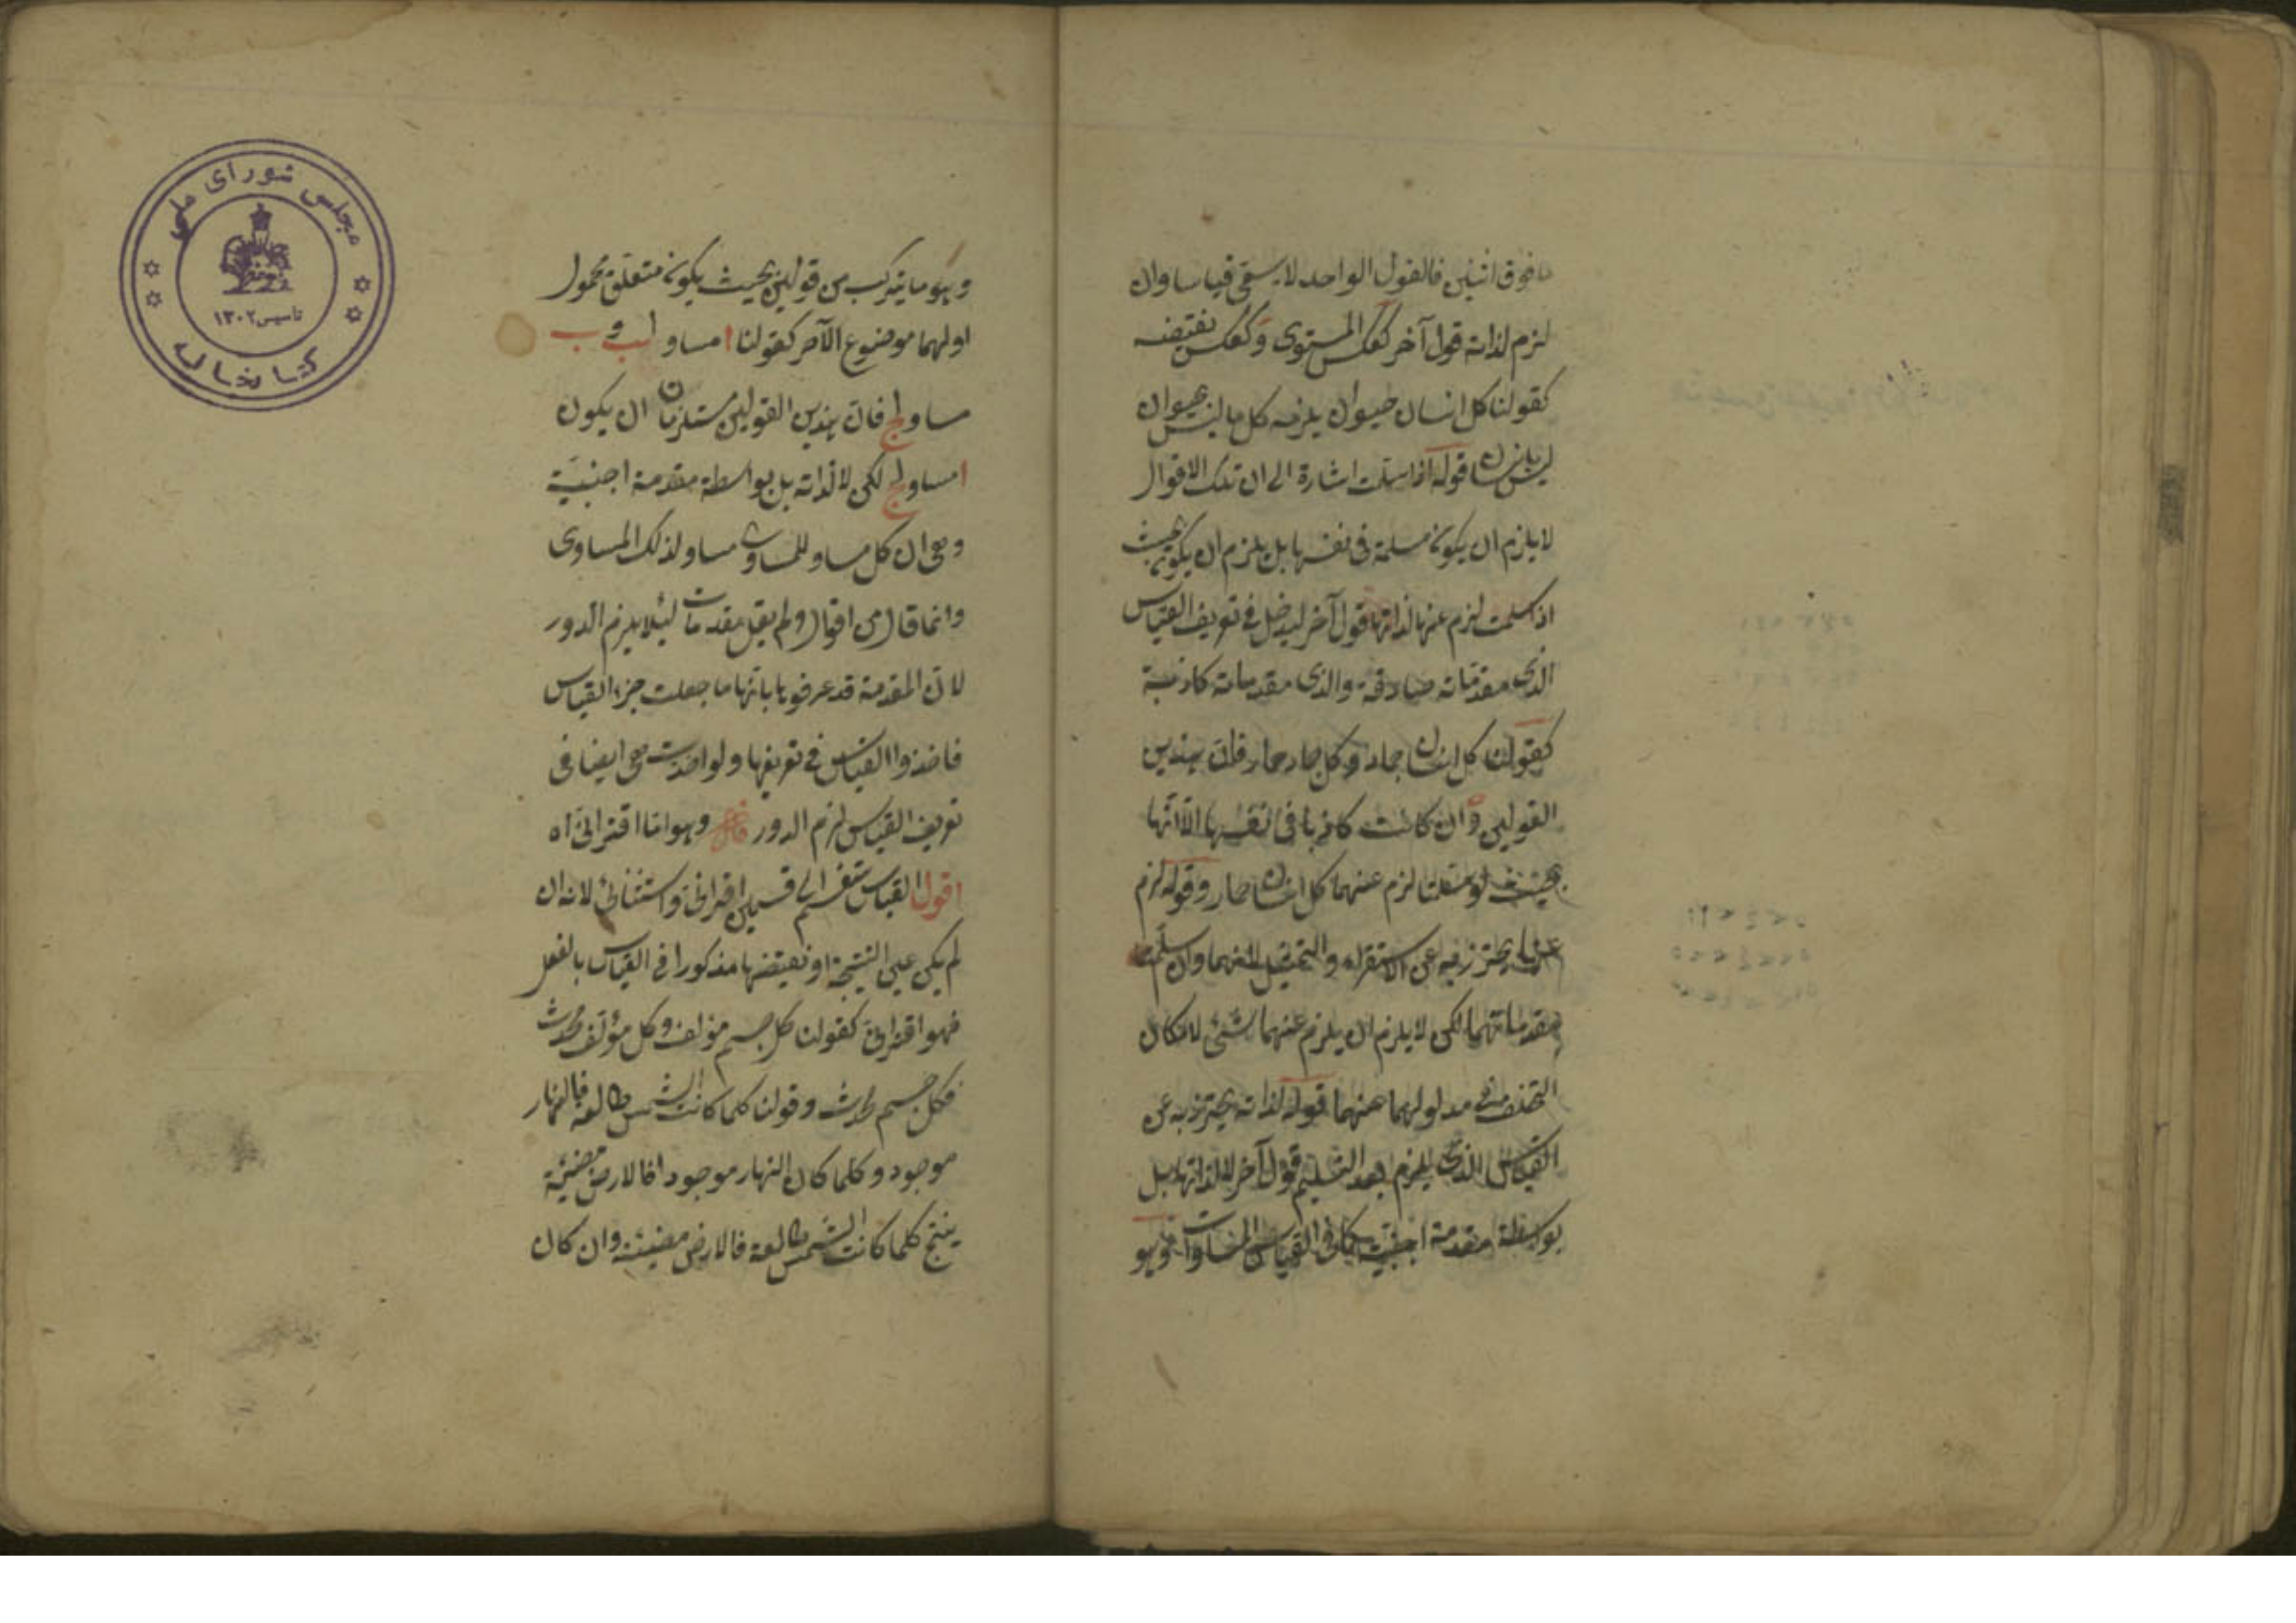 ما فوق اثنين فالقول الواحد لا يسمى قياسا وان
لزم لذاته قول آخر كعكس المستوى وكعكس نقيضه
كقولنا كل انسان حيوان يلزمه كل ما ليس حيوان
ليس بانسان قوله اذا سلمت اشارة الى ان تلك الاقوال
لا يلزم ان يكون مسلمة فى نفسها بل يلزم ان يكون بحيث
اذا سلمت لزم عنها لذاتها قول آخر ليدخل فى تعريف القياس
الذى مقدماته صادقة والذى مقدماته كاذبة
كقولنا كل انسان جماد وكل جماد حمار فان هذين
القولين وان كانت كاذبا فى انفسها الا انها
بحيث لو سلمتا لزم عنهما كل انسان حمار وقوله لزم
عنها يحترز فيه عن الاستقراء والتمثيل لانهما وان سلمت
مقدماتهما لكن لا يلزم ان يلزم عنهما شئ لامكان
التخلف مدلولهما عنهما قوله لذاته يحترز به عن
القياس الذى يلزم بعد التسليم قول آخر لا لذاتها بل
بواسطة مقدمة اجنبية كما فى القياس المساوات وهو
وهو ما يتركب من قولين بحيث يكون متعلق محمول
اولهما موضوع الآخر كقولنا ا مساو لب و ب
مساو لج فان هذين القولين مستلزمان ان يكون
ا مساو لج لكن لا لذاته بل بواسطة مقدمة اجنبية
وهى ان كل مساو للمساوى مساو لذلك المساوى
وانما قال من اقوال ولم يقل مقدمات لئلا يلزم الدور
لان المقدمة قد عرفوها بانها ما جعلت جزء القياس
فاخذوا القياس فى تعريفها ولو اخذت هى ايضا فى
تعريف القياس لزم الدور قال وهو اما اقترانى اه
اقول القياس ينقسم الى قسمين اقترانى واستثنائى لانه ان
لم يكن عين النتيجة او نقيضها مذكورا فى القياس بالفعل
فهو اقترانى كقولنا كل جسم مؤلف وكل مؤلف محدث
فكل جسم محدث وقولنا كلما كانت الشمس طالعة فالنهار
موجود وكلما كان النهار موجودا فالارض مضيئة
ينتج كلما كانت الشمس طالعة فالارض مضيئة وان كان
مجلس شورای ملی
تاسیس ۱۳۰۲
کتابخانه